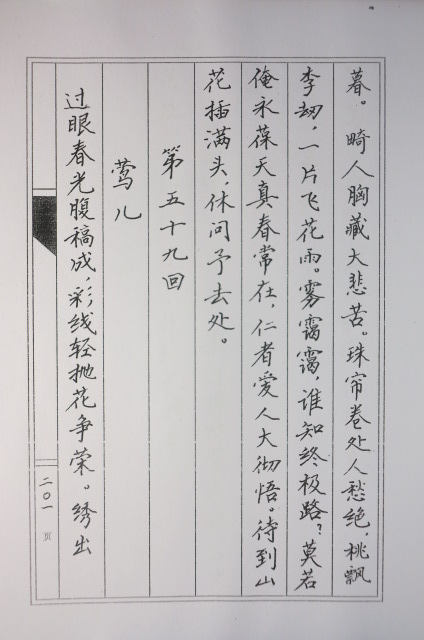 暮。畸人胸藏大悲苦。珠帘卷处人愁绝，桃飘
李劫，一片飞花雨。雾霭霭，谁知终极路？莫若
俺永葆天真春常在，仁者爱人大彻悟。待到山
花插满头，休问予去处。
第五十九回
莺儿
过眼春光腹稿成，彩线轻抛花争荣。绣出
二〇一 页